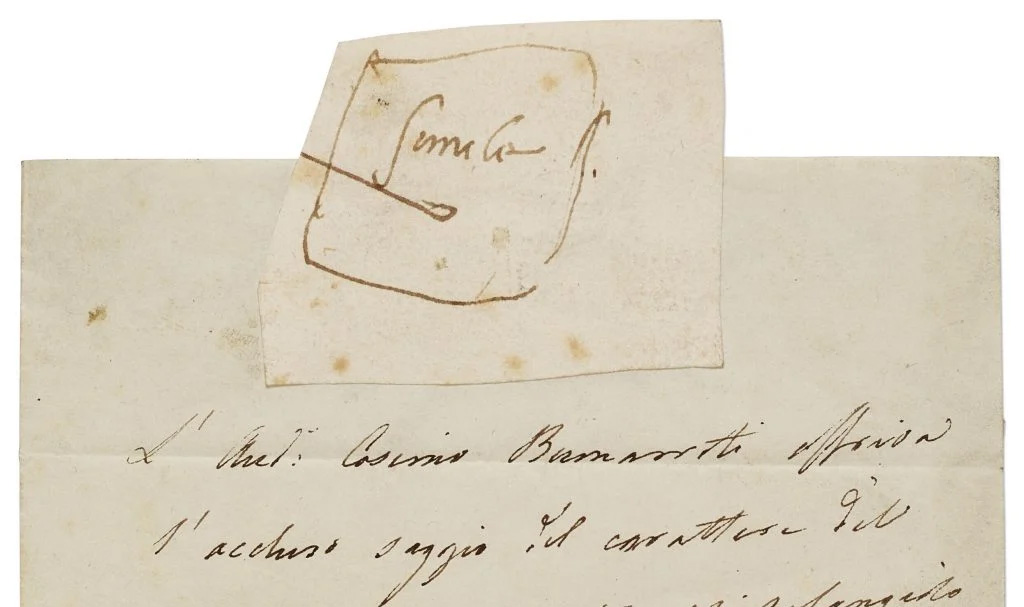 Simile
L' Aud: Cosimo Buonarroti offriva
l' accluso saggio del carattere del